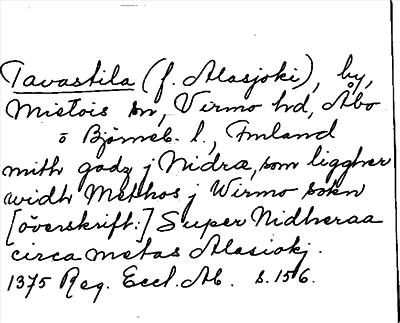 Tavastila (f. Alasjoki), by,
Mietois sn, Virmo hd, Åbo
o Björneb. l., Finland
mith godz j Nidra, som liggher
widh Methos j Wirmo sokn
[överskrift:] Super Nidheraa
circa metas Alasiokj.
1375 Reg. Eccl. Ab. s. 156.